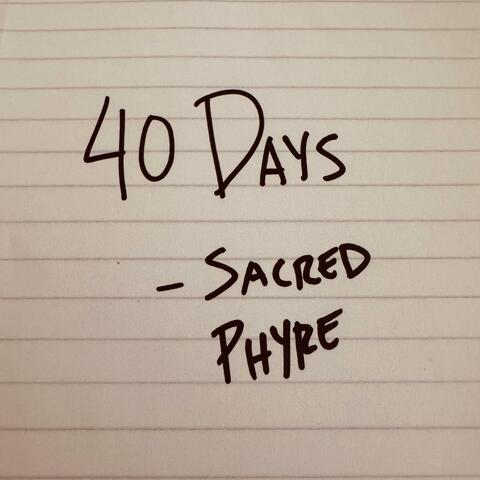 40 DAYS
- SACRED
PHYRE